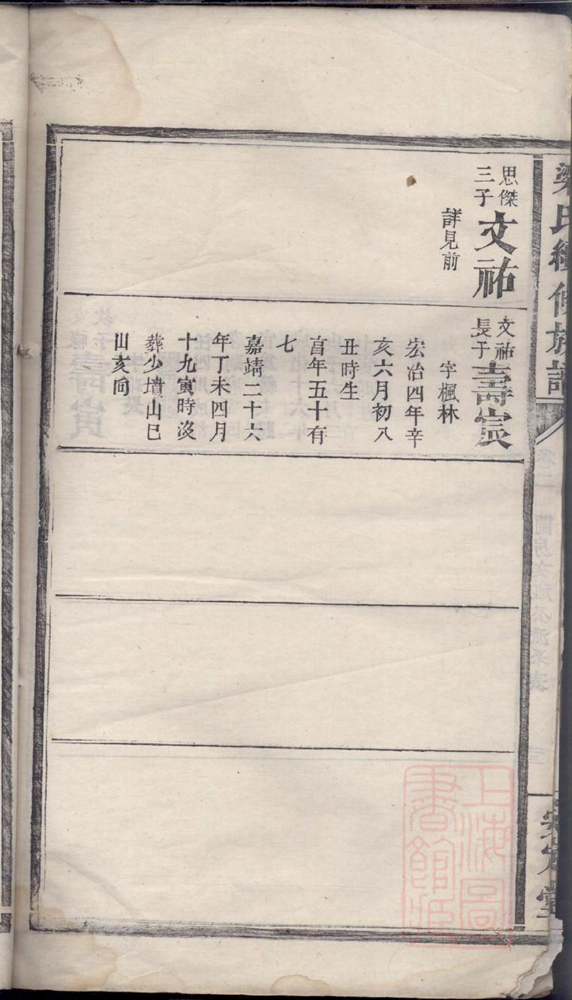 梁氏續修族譜
安定堂
思傑
三子
文祐
詳見前
文祐
長子
壽宸
字楓林
宏治四年辛
亥六月初八
丑時生
盲年五十有
七
嘉靖二十六
年丁未四月
十九寅時沒
葬少墳山巳
山亥向
上海圖
書館藏